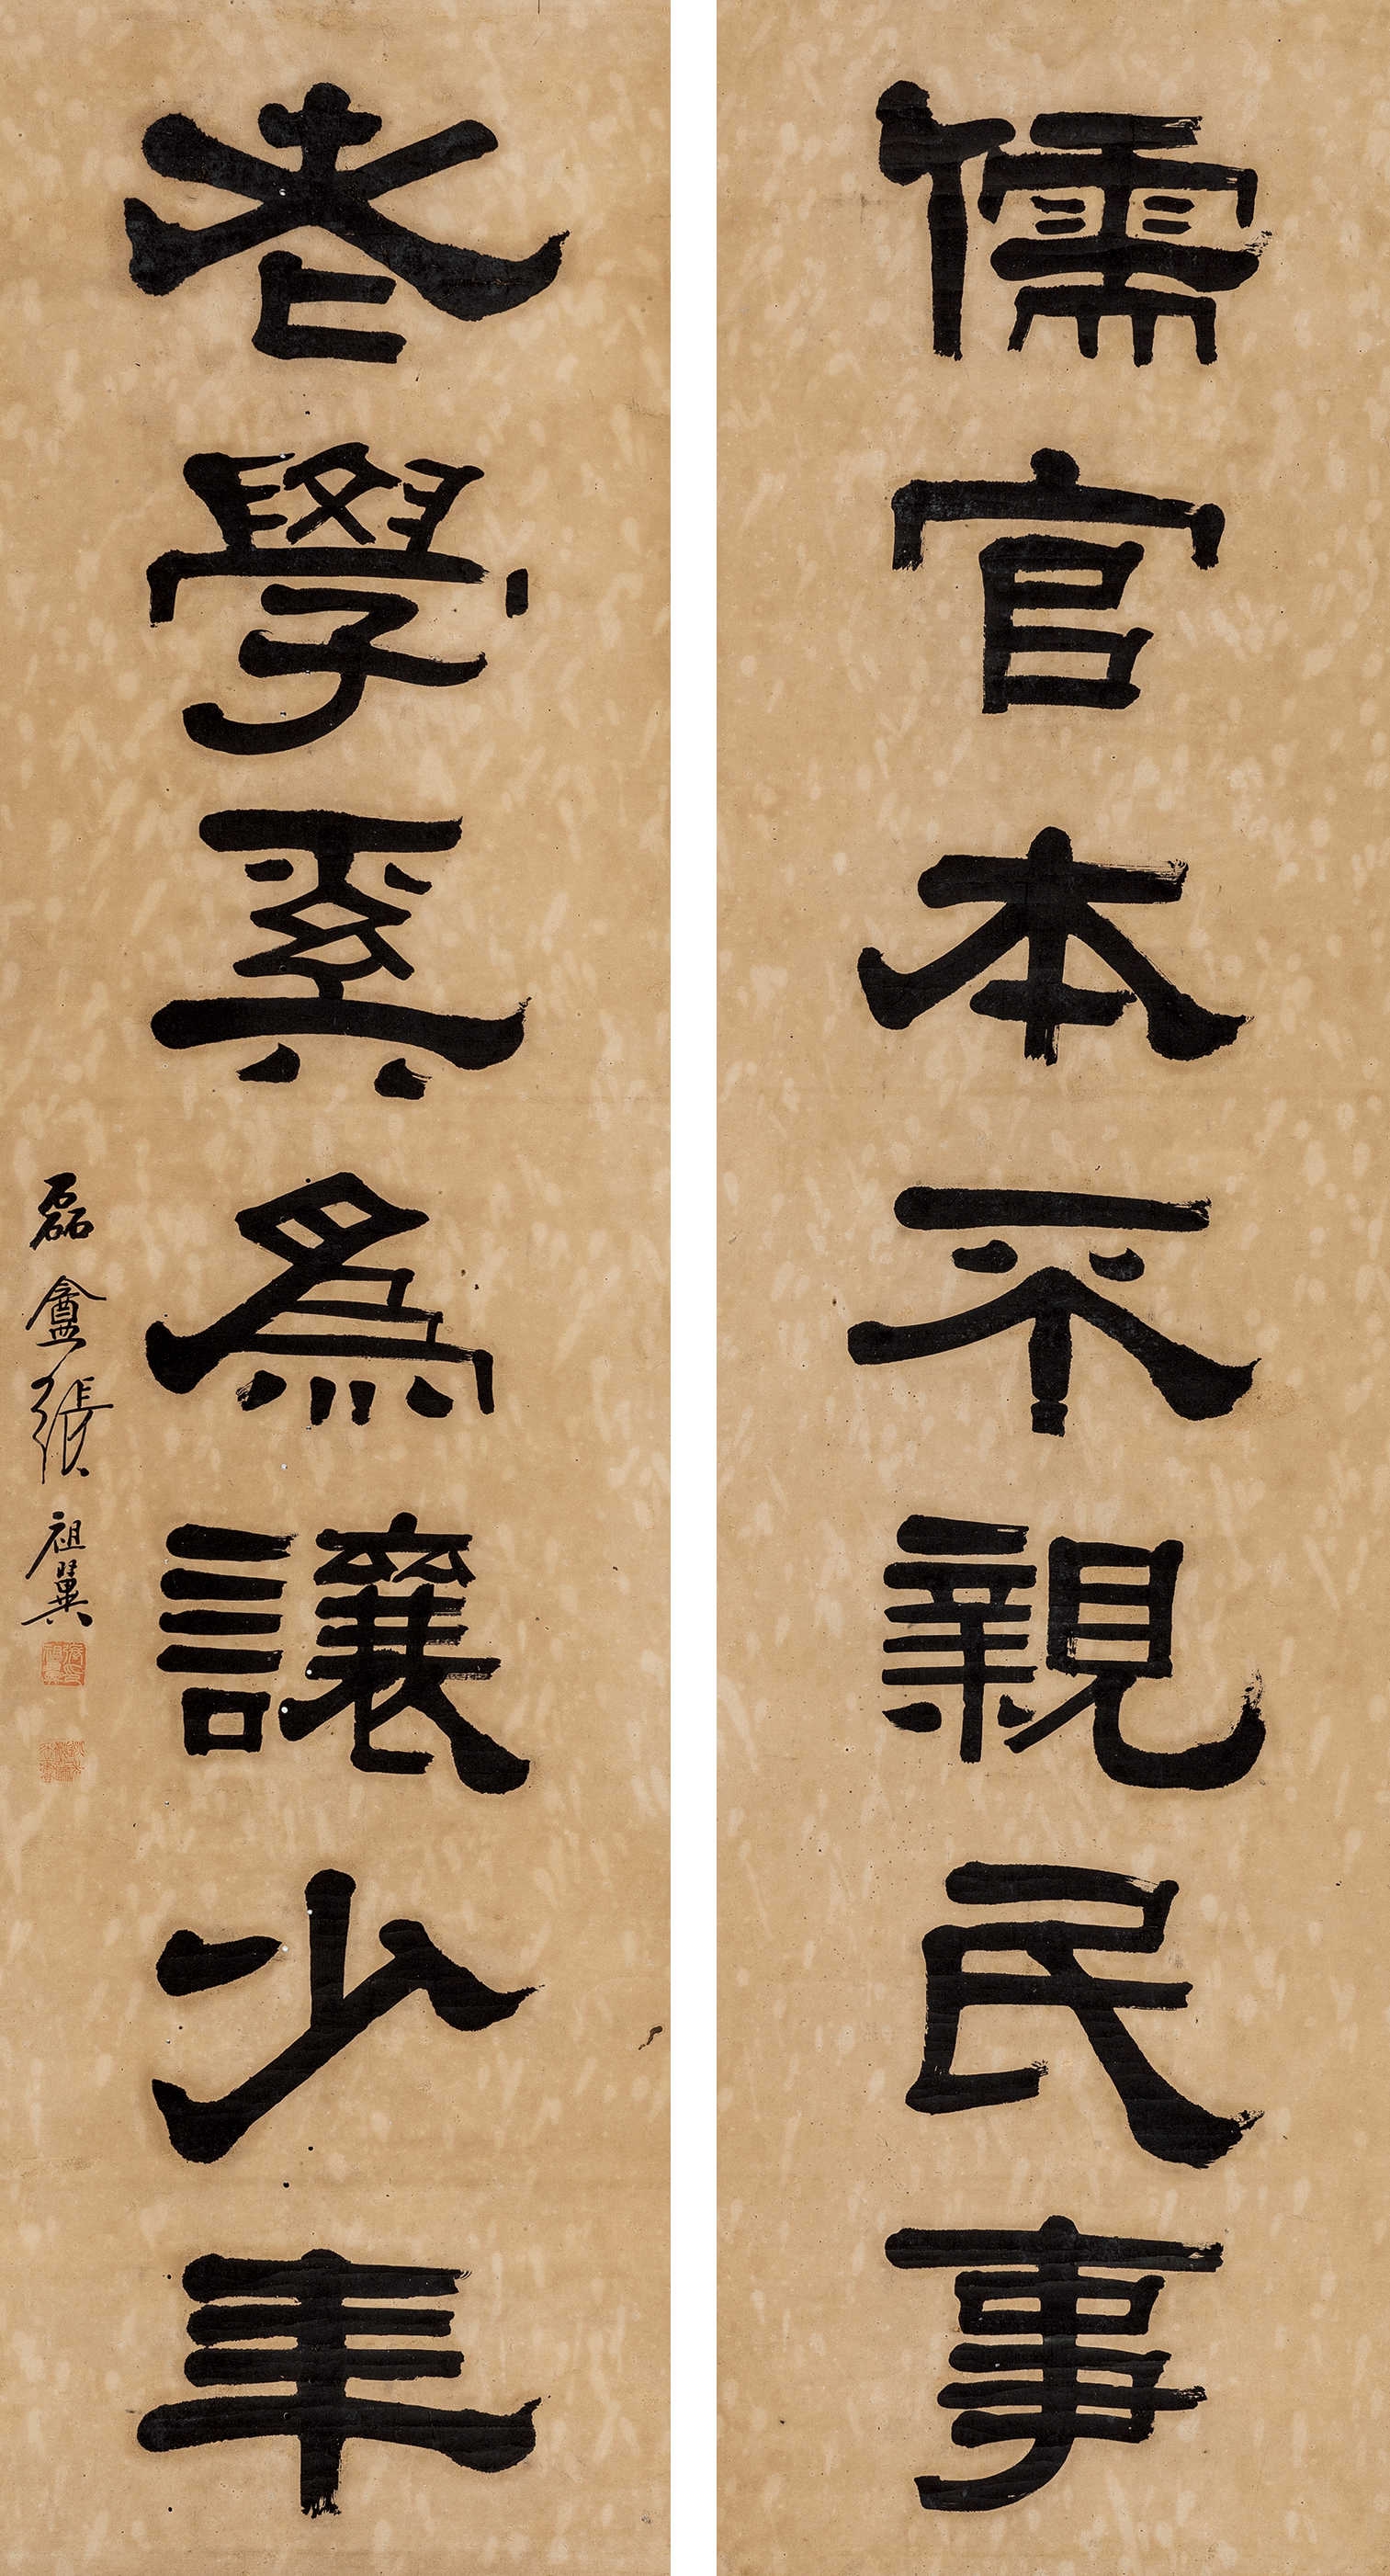 儒官本不親民事
老學奚為讓少年
磊盦張祖翼